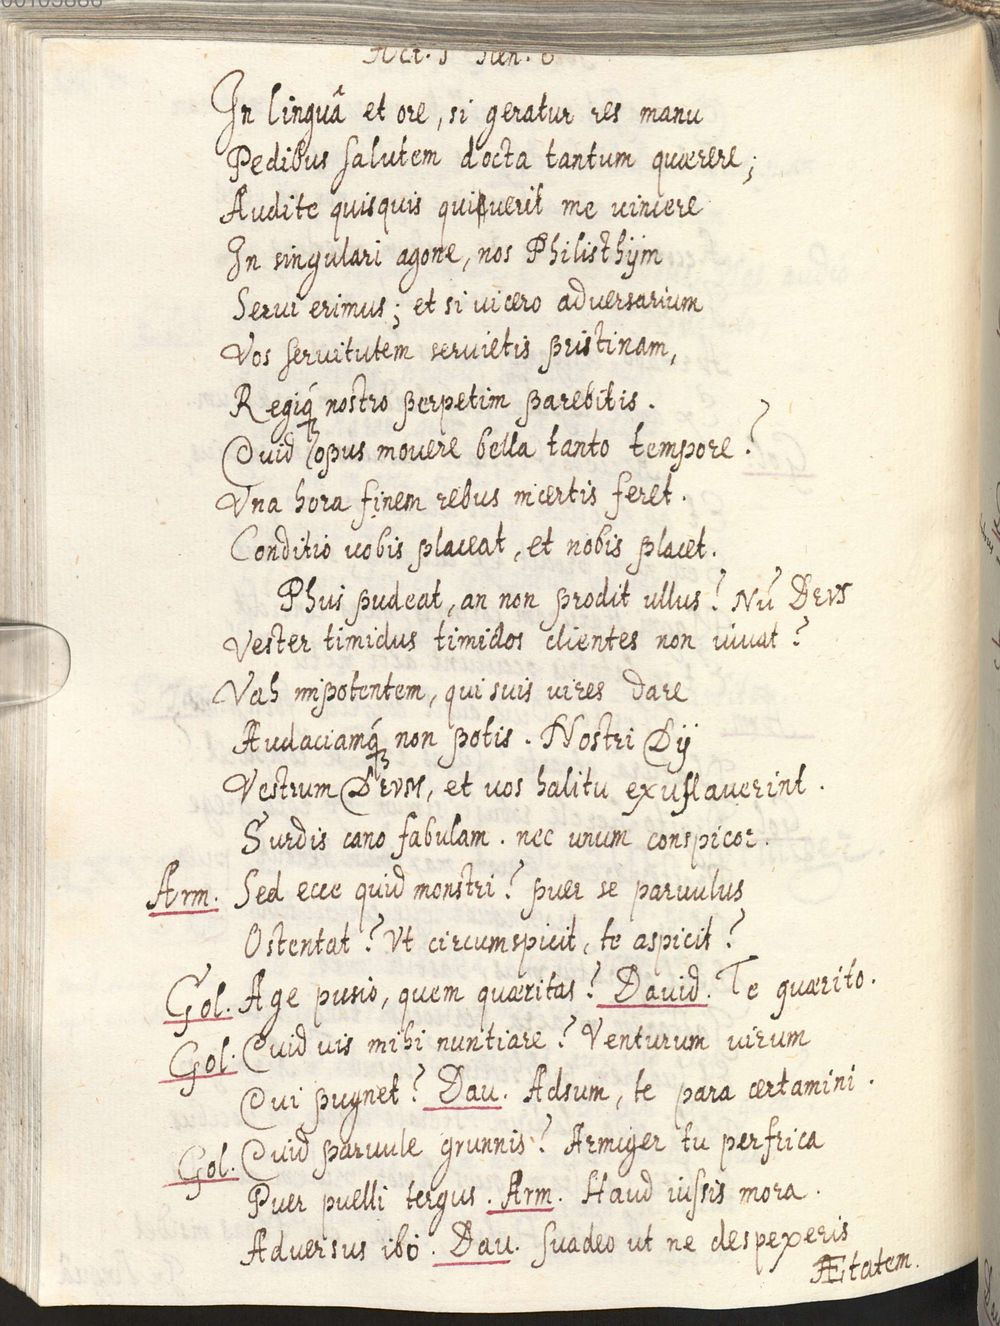 In linguâ et ore, si geratur res manu
Pedibus salutem docta tantum quærere;
Audite quisquis quiverit me vincere
In singulari agone, nos Philisthijm
Servi erimus; et si vicero adversarium
Vos servitutem servietis pristinam,
Regiq́ nostro perpetim parebitis.
Quid opus movere bella tanto tempore?
Vna hora finem rebus incertis feret.
Conditio vobis placeat, et nobis placet.
Phui pudeat, an non prodit ullus? Nū Devs
Vester timidus timidos clientes non iuvat?
Vah impotentem, qui suis vires dare
Audaciamq́ non potis. Nostri Dij
Vestrum Devm, et vos halitu exuflaverint.
Surdis cano fabulam. nec unum conspicor.
Arm. Sed ecce quid monstri? puer se parvulus
Ostentat? Vt circumspicit, te aspicit?
Gol. Age pusio, quem quæritas? David. Te quærito.
Gol. Quid vis mihi nuntiare? Venturum virum
Qui pugnet? Dau. Adsum, te para certamini.
Gol. Quid parvule grunnis? Armiger tu perfrica
Puer puelli tergus. Arm. Haud iussis mora.
Adversus ibo. Dau. Suadeo ut ne despexeris
Ætatem.